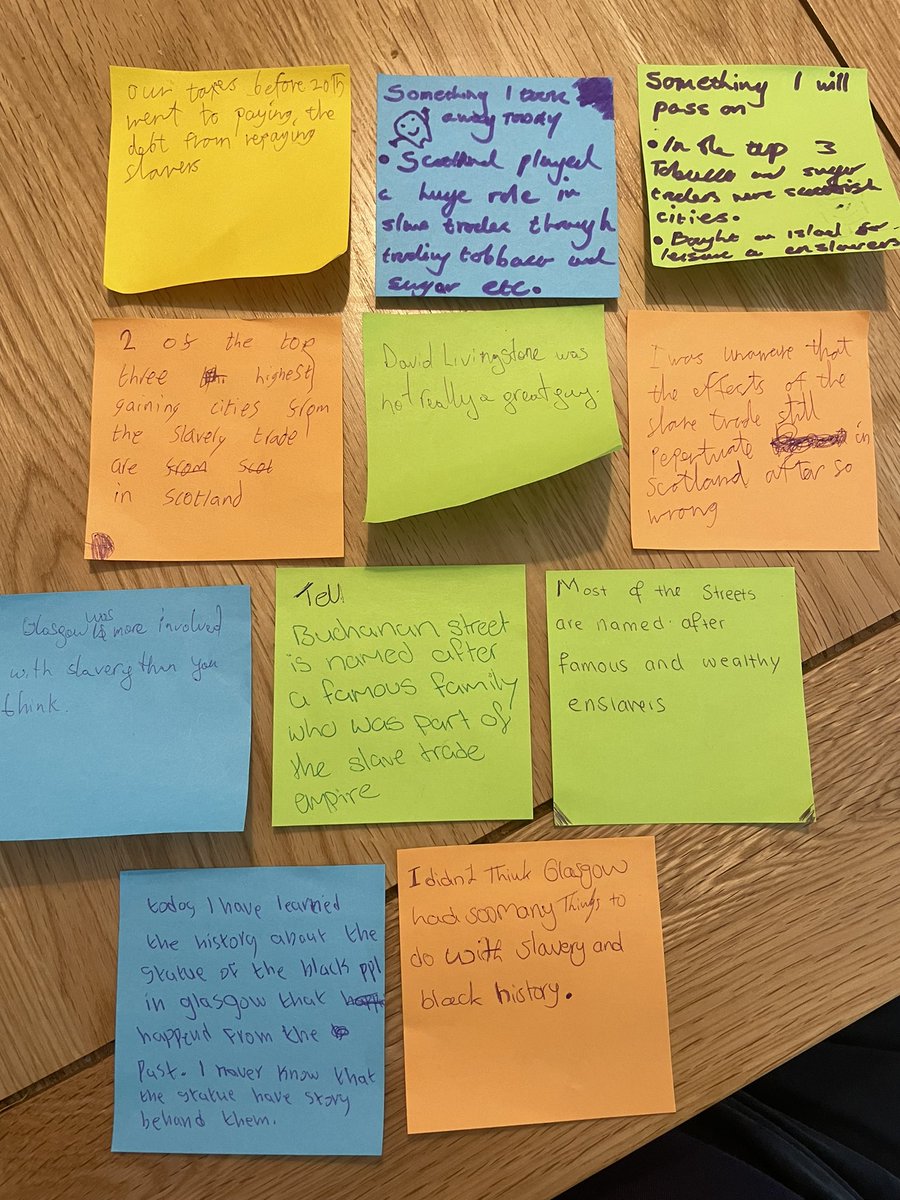 Our taxes before 20th
went to paying the
debt from repaying
slavers
Something I took
away TODAY
• Scotland played
a huge role in
slave trades through
trading tobbaco and
sugar etc.
Something I will
pass on
• In the top 3
Tobacco and sugar
traders were scottish
cities.
• Bought an island for
leisure a enslavers
2 of the top
three highest
gaining cities from
the slavery trade
are from scot
in scotland
David Livingstone was
not really a great guy.
I was unaware that
the effects of the
slave trade still
pepertuate in
Scotland after so
wrong
Glasgow was more involved
with slavery than you
think.
Tell
Buchanan street
is named after
a famous family
who was part of
the slave trade
empire
Most of the Streets
are named after
famous and wealthy
enslavers
today I have learned
the history about the
statue of the black ppl
in glasgow that
happend from the
Past. I never know that
the statue have story
behand them.
I didn't Think Glasgow
had soomany Things to
do with slavery and
black history.